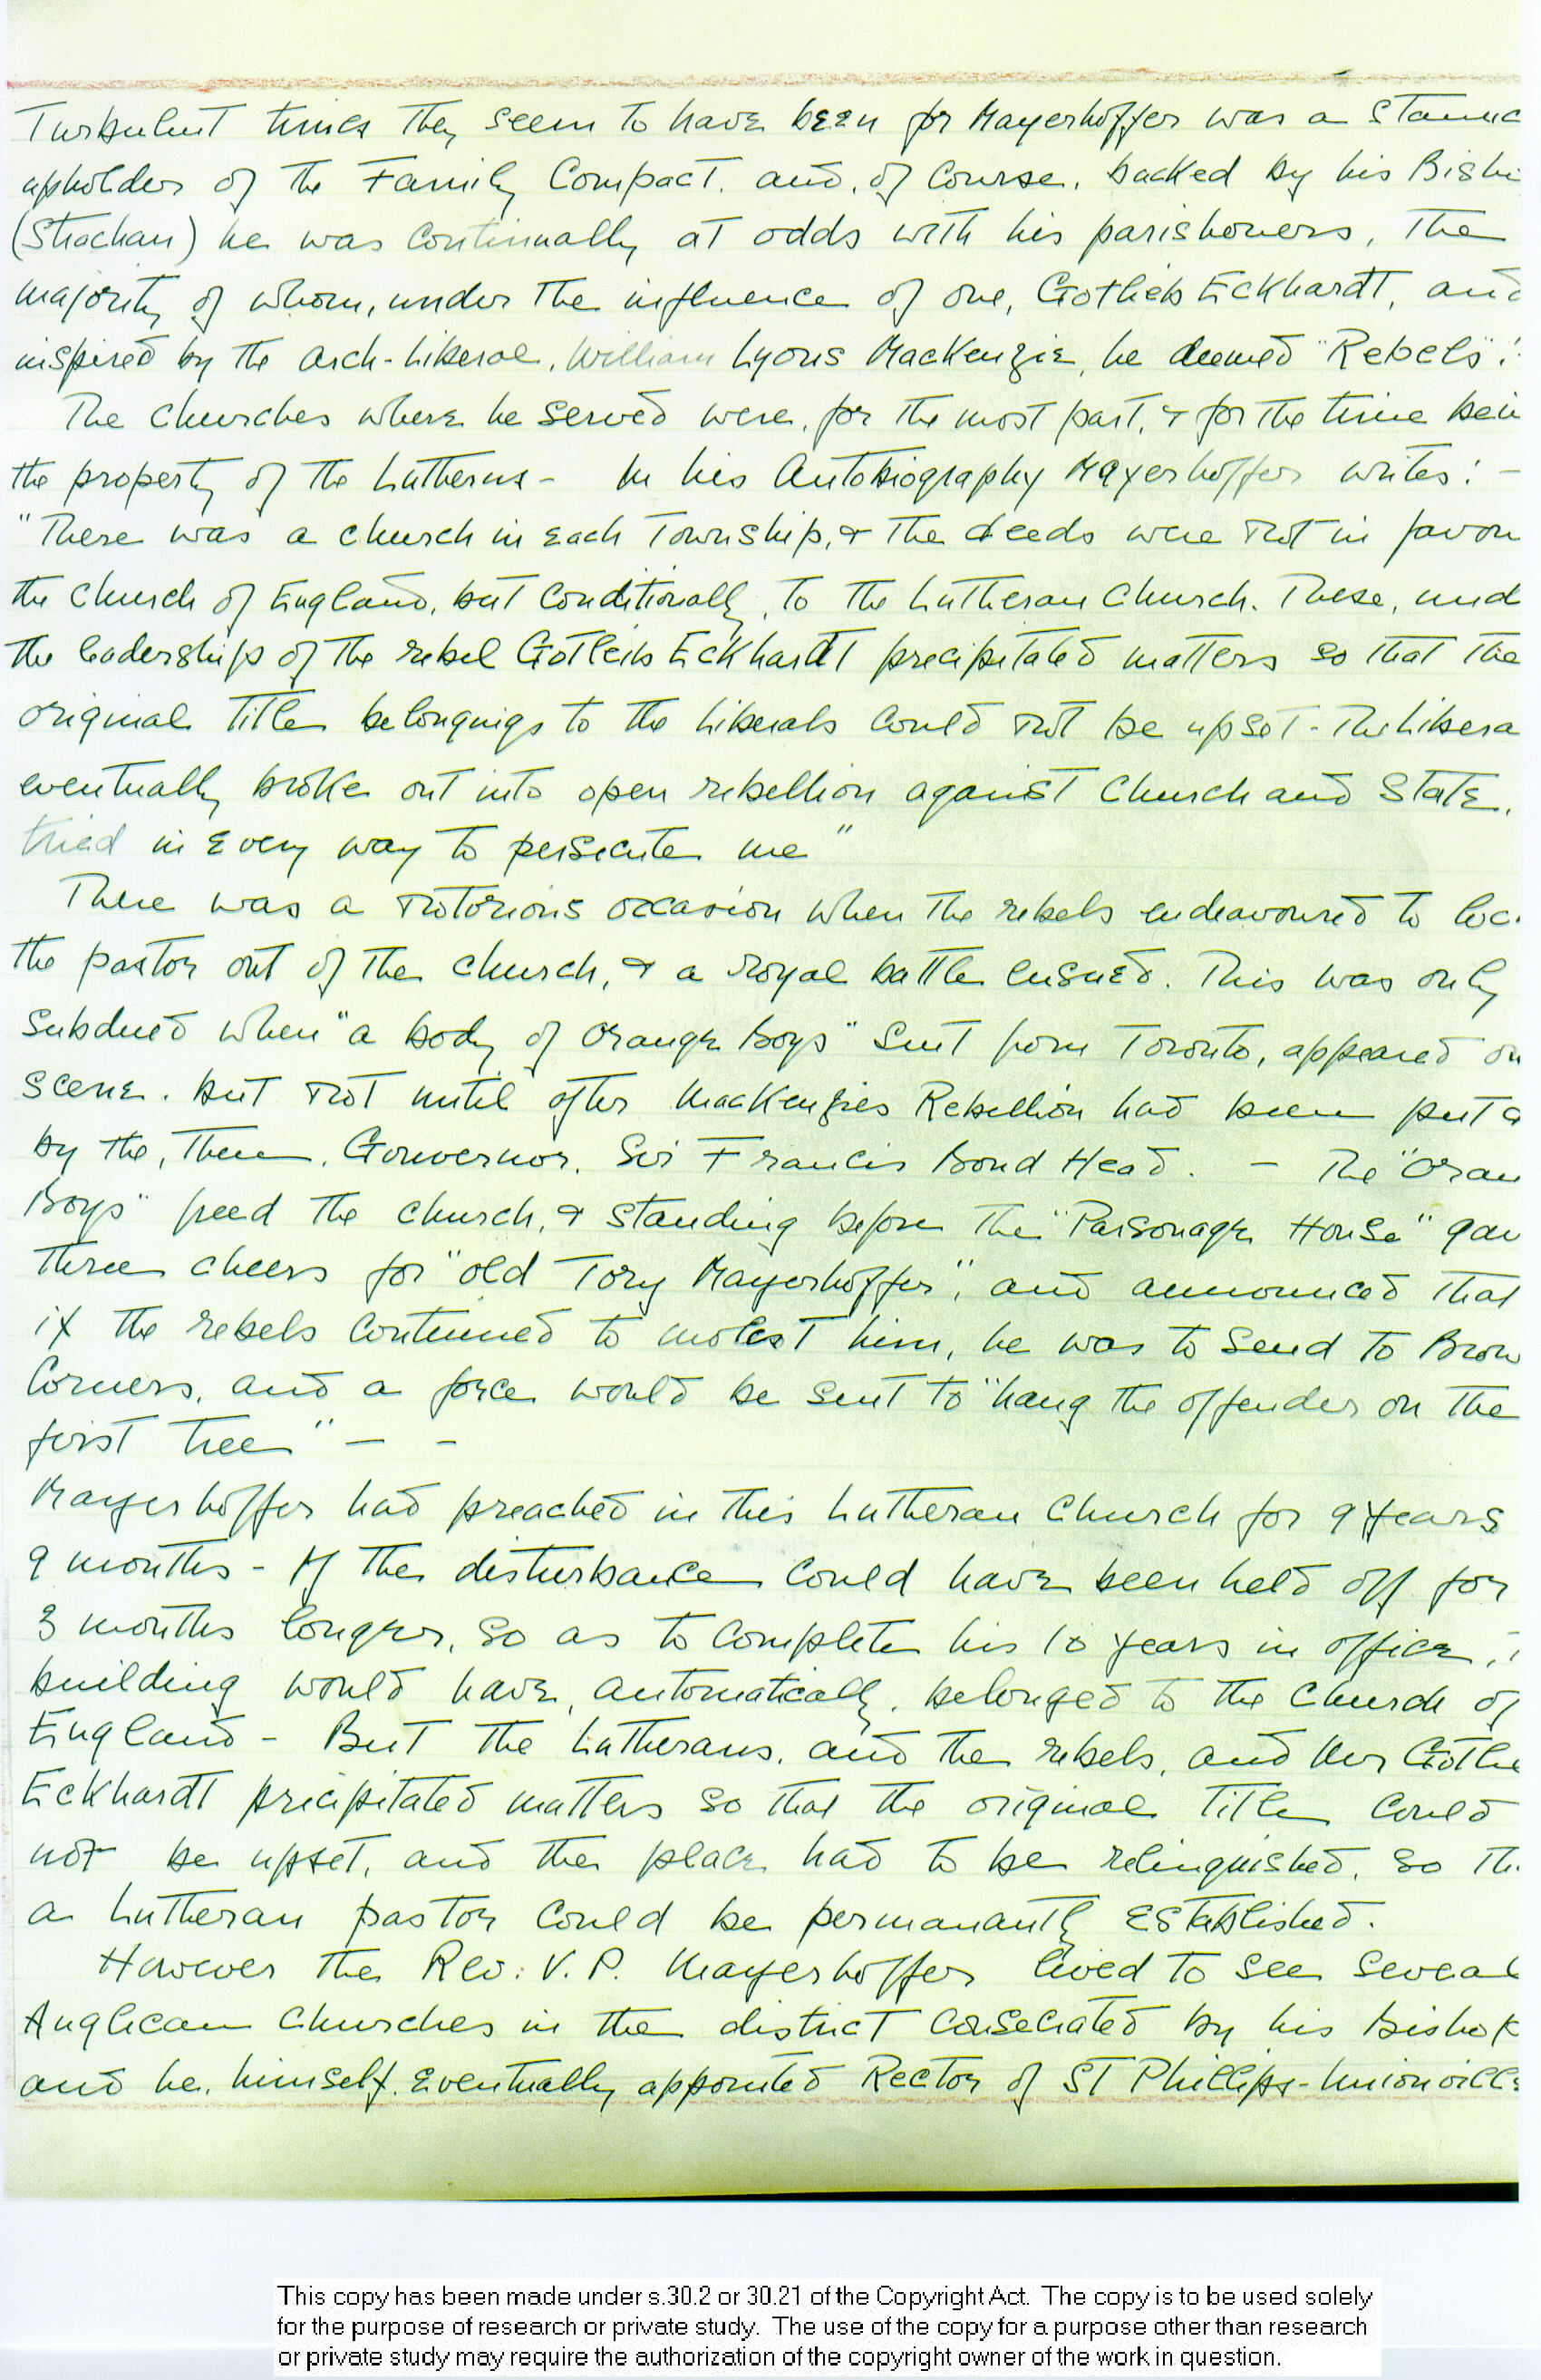 Turbulent times they seem to have been for Mayerhoffer was a Staunc
upholder of the Family Compact. and, of course, backed by his Bisho
(Strachan) he was continually at odds with his parishoners, the
majority of whom, under the influence of one, Gotlieb Eckhardt, and
inspired by the arch-liberal, William Lyons MacKenzie, he deemed "Rebels"!
The Churches where he served were, for the most part, & for the time bein
the property of the Lutherns - In his Autobiography Mayerhoffer writes: -
"There was a church in each Township, & the deeds were not in favou
the Church of England, but conditionally, to the Lutheran Church. These, und
the leadership of the rebel Gotleib Eckhardt precipitated matters so that the
original title belongings to the Liberals could not be upset - The Libera
eventually broke out into open rebellion against Church and State,
tried in every way to persecute me"
There was a notorious occasion when the rebels endeavoured to loc
the pastor out of the church, & a royal battle ensued. This was only
subdued when "a body of Orange Boys" sent from Toronto, appeared on
scene. but not until after MacKenzies Rebellion had been put d
by the, then, Gouvernor, Sir Francis Bond Head. - The "Oran
Boys" freed the church, & standing before the "Parsonage House" gav
three cheers for "old Tory Mayerhoffer", and announced that
if the rebels continued to molest him, he was to send to Brow
Corners, and a force would be sent to "hang the offender on the
first tree" - -
Mayerhoffer had preached in this Lutheran Church for 9 years
9 months - If the disturbance could have been held off for
3 months longer, so as to complete his 10 years in office,
building would have, automatically, belonged to the Church of
England - But the Lutherans, and the rebels, and Herr Gotlie
Eckhardt precipitated matters so that the original title could
not be upset, and the place had to be relinquished, so th
a Lutheran pastor could be permanantly established.
However the Rev: V. P. Mayerhoffer lived to see several
Anglican Churches in the district consecrated by his Bishop
and he, himself, eventually appointed Rector of St Phillips-Unionville
This copy has been made under s.30.2 or 30.21 of the Copyright Act. The copy is to be used solely
for the purpose of research or private study. The use of the copy for a purpose other than research
or private study may require the authorization of the copyright owner of the work in question.